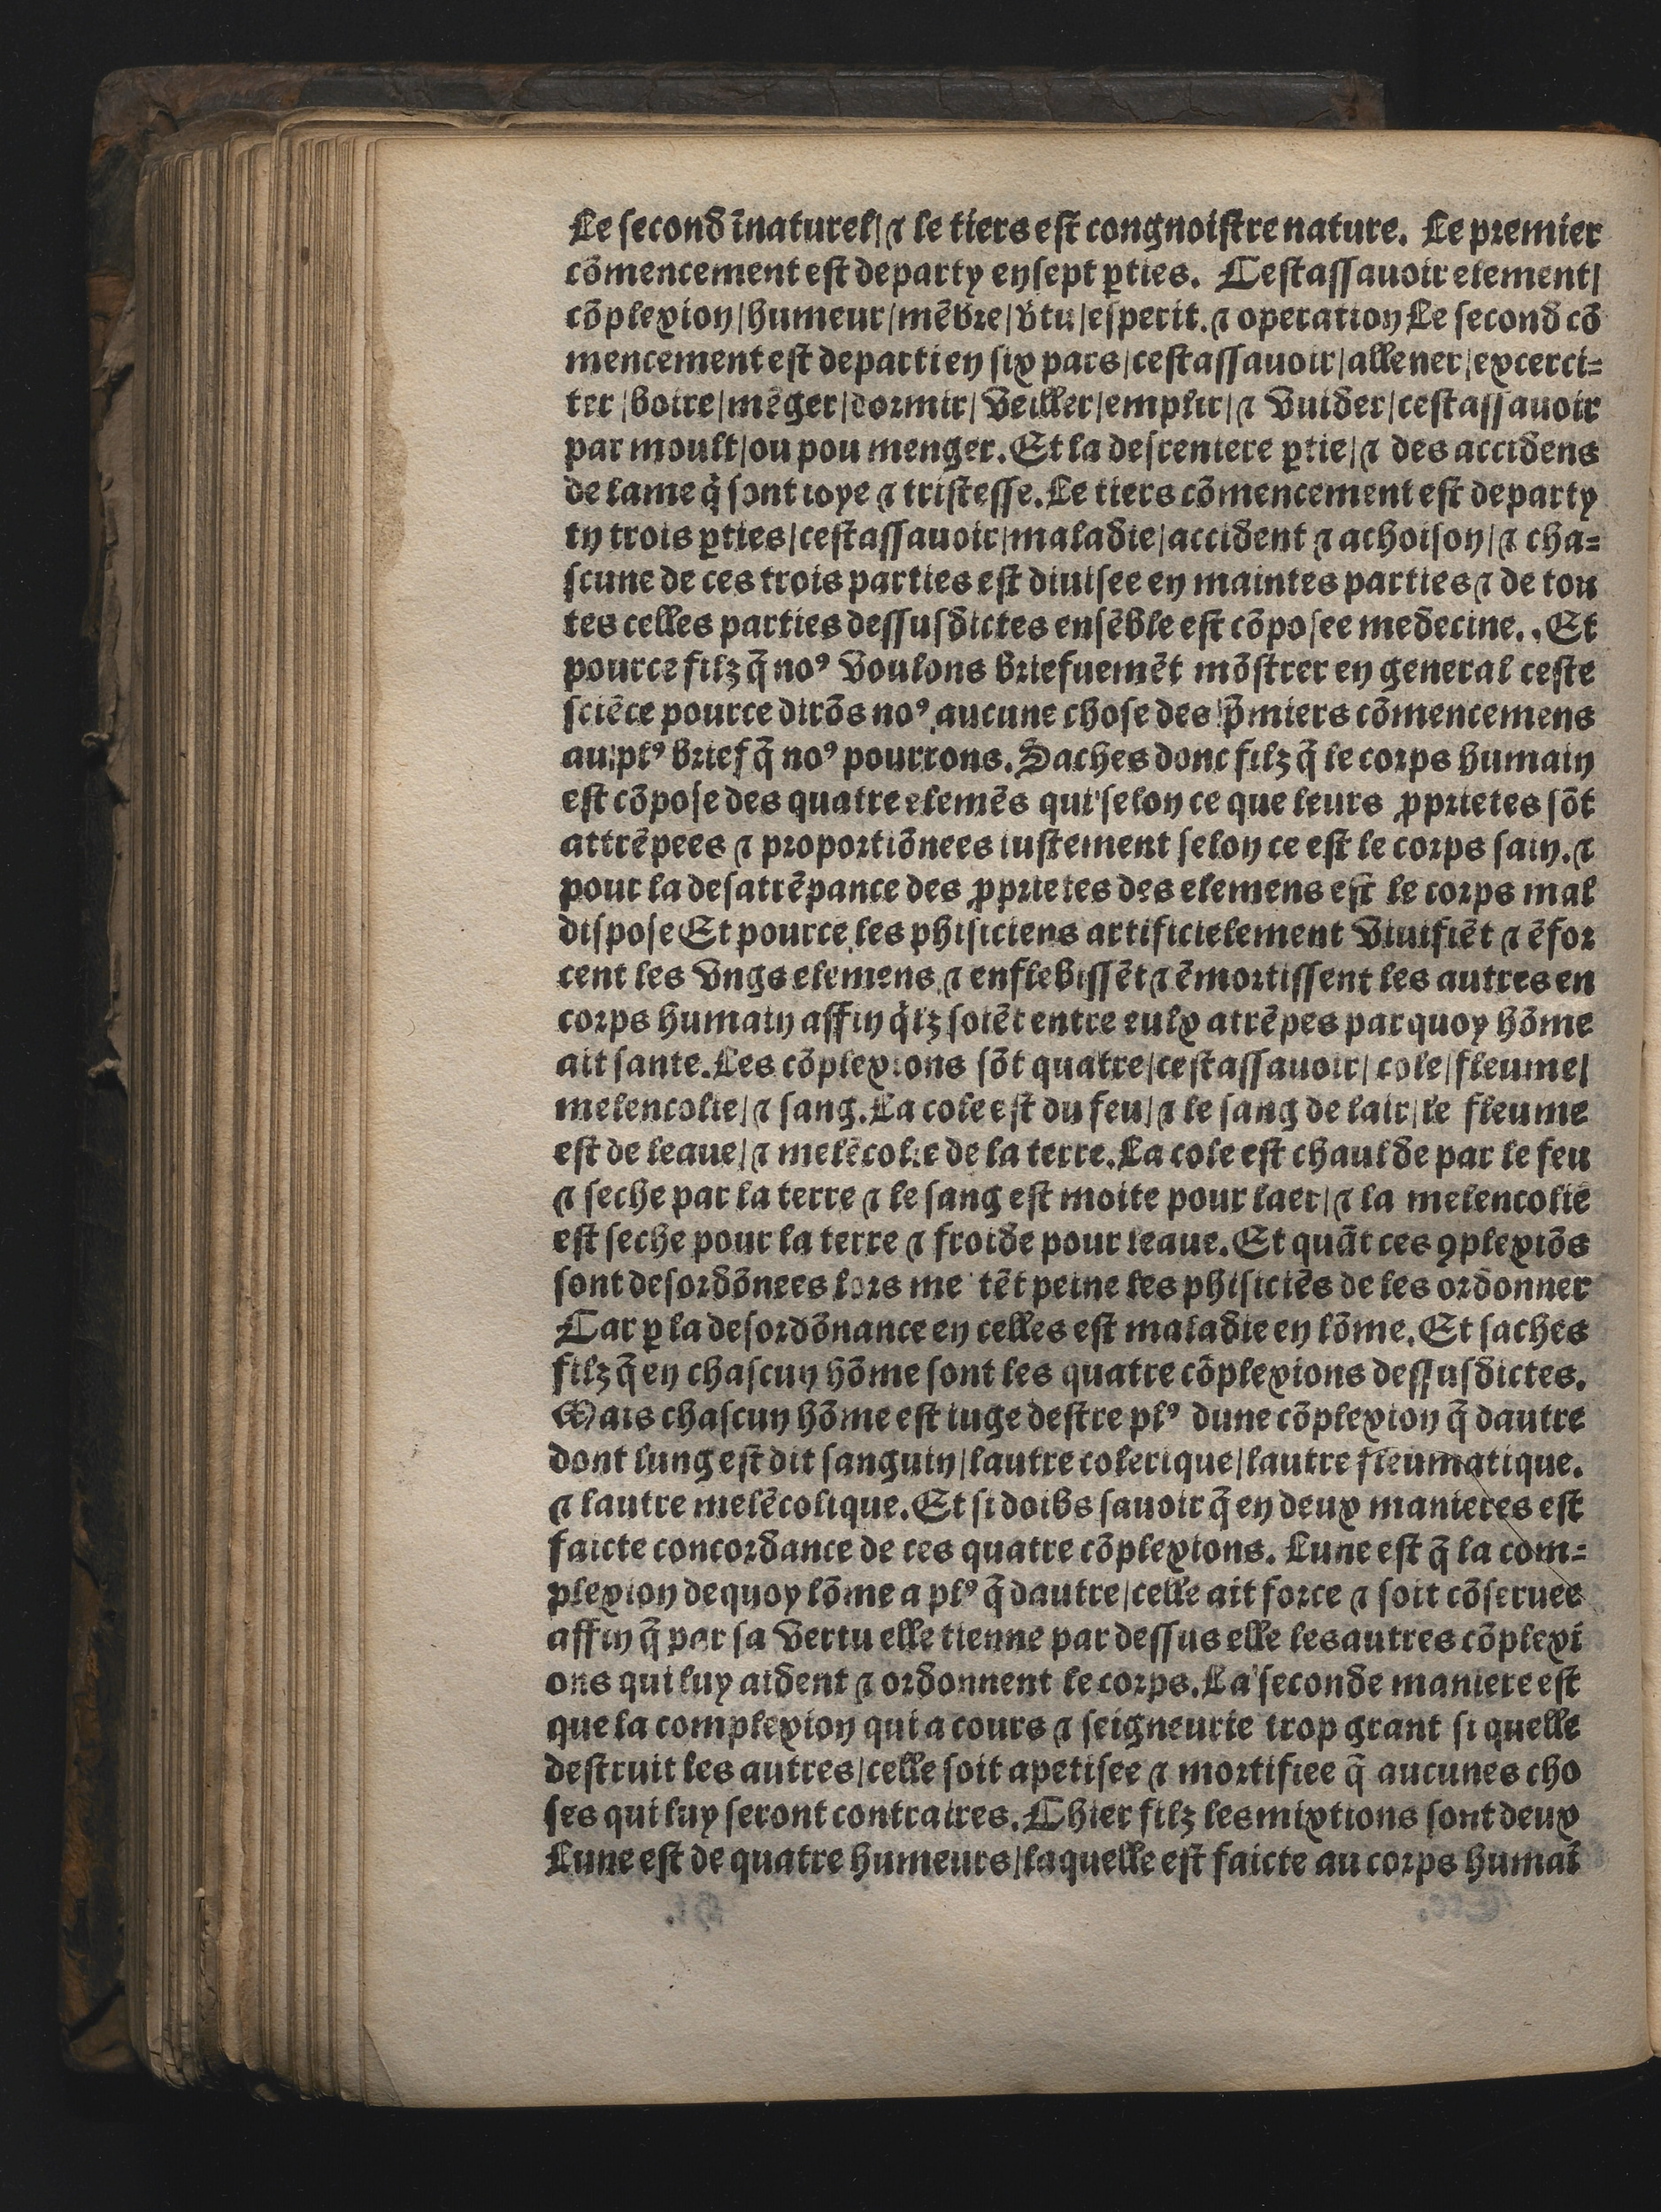 Le secōd īnaturel/⁊ le tiers est congnoistre nature. Le premier
cōmencement est departy en sept ꝑties. Cestassauoir element/
cōplexion/humeur/mēbre/v̄tu/esperit.⁊ operation Le second cō
mencement est departi en six pars/cestassauoir/allener/excerci=
ter/boire/mēger/dormir/veiller/emplir/⁊ vuider/cestassauoir
par moult/ou pou menger. Et la desreniere ꝑtie/⁊ des accidens
de lame q̇ sont ioye ⁊ tristesse. Le tiers cōmencement est departy
en trois ꝑties/cestassauoir/maladie/accident ⁊ achoison/⁊ cha=
scune de ces trois parties est diuisee en maintes parties ⁊ de tou
tes celles parties dessusdictes ensēble est cōposee medecine. Et
pource filz q̄ noꝰ voulons briefuemēt mōstrer en general ceste
sciēce pource dirōs noꝰ aucune chose des p̄miers cōmencemens
au plꝰ brief q̄ noꝰ pourrons. Saches donc filz q̄ le corps humain
est cōpose des quatre elemēs qui selon ce que leurs ꝓprietes sōt
attrēpees ⁊ proportiōnees iustement selon ce est le corps sain.⁊
pour la desatrēpance des ꝓprietes des elemens est le corps mal
dispose Et pource les phisiciens artificielement viuifiēt ⁊ ēfor
cent les vngs elemens ⁊ enflebissēt ⁊ ēmortissent les autres en
corps humain affin q̇lz soiēt entre eulx atrēpes par quoy hōme
ait sante. Les cōplexions sōt quatre/cestassauoir/cole/fleume/
melencolie/⁊ sang. La cole est du feu/⁊ le sang de lair/le fleume
est de leaue/⁊ melēcolie de la terre. La cole est chaulde par le feu
⁊ seche par la terre ⁊ le sang est moite pour laer/⁊ la melencolie
est seche pour la terre ⁊ froide pour leaue. Et quāt ces ꝯplexiōs
sont desordōnees lors metēt peine les phisiciēs de les ordonner
Car ꝑ la desordōnance en celles est maladie en lōme. Et saches
filz q̄ en chascun hōme sont les quatre cōplexions dessusdictes.
Mais chascun hōme est iuge destre plꝰ dune cōplexion q̄ dautre
dont lung est dit sanguin/lautre colerique/lautre fleumatique.
⁊ lautre melēcolique. Et si doibs sauoir q̄ en deux manieres est
faicte concordance de ces quatre cōplexions. Lune est q̄ la com=
plexion dequoy lōme a plꝰ q̄ dautre/celle ait force ⁊ soit cōseruee
affin q̄ par sa vertu elle tienne par dessus elle les autres cōplexi
ons qui luy aident ⁊ ordonnent le corps. La seconde maniere est
que la complexion qui a cours ⁊ seigneurie trop grant si quelle
destruit les autres/celle soit apetisee ⁊ mortifiee q̄ aucunes cho
ses qui luy seront contraires. Chier filz les mixtions sont deux
Lune est de quatre humeurs/laquelle est faicte au corps humaī